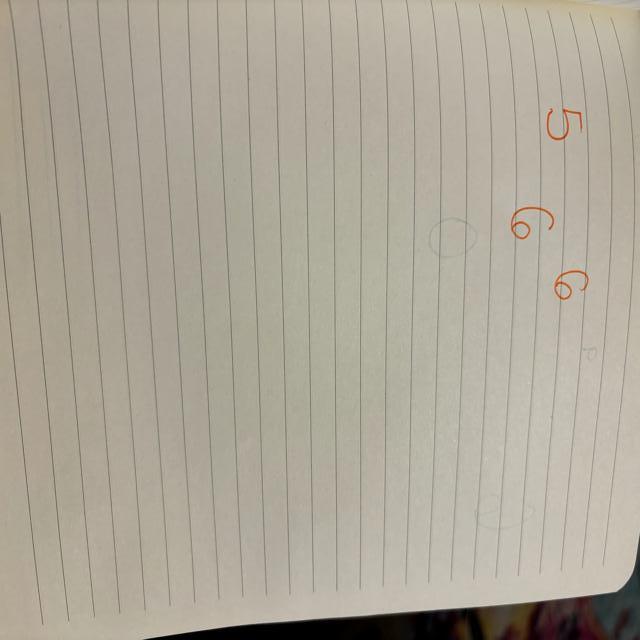 5 6 6